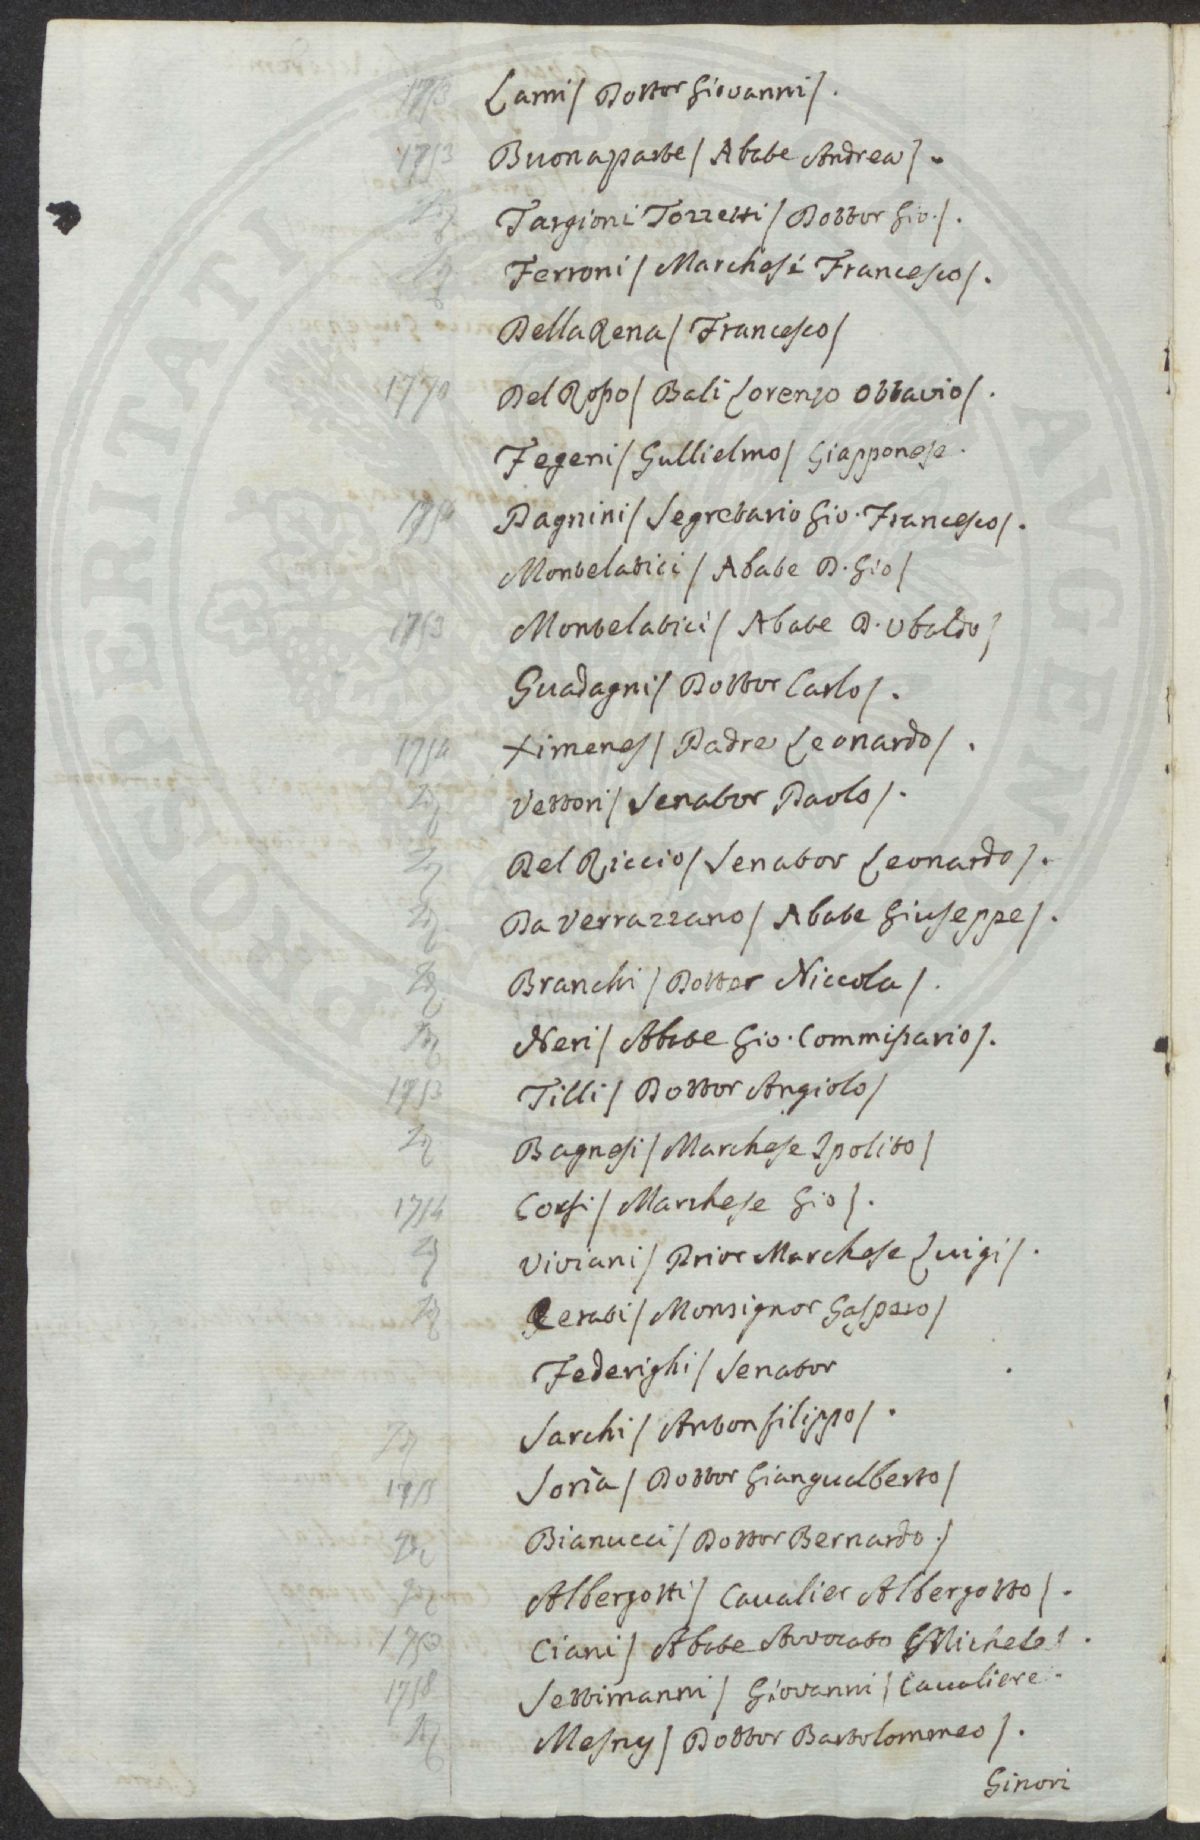 1753 Lami/ Dottor Giovanni/.
1753 Buonaparte/ Abate Andrea/.
Targioni Tozzetti/ Dottor Gio./.
Ferroni/ Marchese Francesco/.
Della Rena/ Francesco/
1770 Del Rosso/ Balì Lorenzo Ottavio/.
Fegeni/ Gullielmo/ Giapponese.
1754 Pagnini/ Segretario Gio. Francesco/.
Montelatici/ Abate D. Gio/
1753 Montelatici/ Abate D. Ubaldo/
Guadagni/ Dottor Carlo/.
1754 Ximenes/ Padre Leonardo/.
Vettori/ Senator Paolo/.
Del Riccio/ Senator Leonardo/.
Da Verrazzano/ Abate Giuseppe/.
Branchi/ Dottor Niccola/.
Neri/ Abate Gio. Commissario/.
1753 Tilli/ Dottor Angiolo/
Bagnesi/ Marchese Ipolito/
1754 Corsi/ Marchese Gio/.
Viviani/ Prior Marchese Luigi/.
Cerati/ Monsignor Gasparo/
Federighi/ Senator .
Sarchi/ Anton Filippo/.
1755 Soria/ Dottor Giangualberto/
Bianucci/ Dottor Bernardo./
Albergotti/ Cavalier Albergotto/.
Ciani/ Abate Avvocato Michele/.
1758 Settimanni/ Giovanni/ Cavaliere.
Mesny/ Dottor Bartolommeo/.
Ginori
PROSPERITATI PUBLICAE AUGENDAE